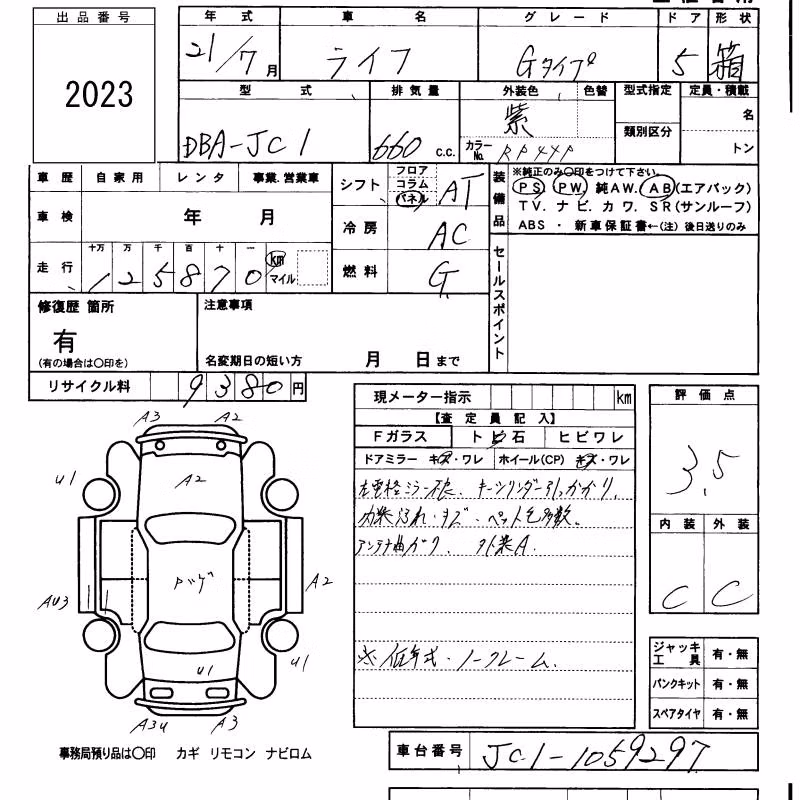 出品番号
2023
年式 車名 グレード ドア 形状
21/7月 ライフ Gタイプ 5 箱
型式 排気量 外装色 色替 型式指定 定員・積載
DBA-JC1 660 c.c. 紫 名
カラーNo. 類別区分 トン
車歴 自家用 レンタ 事業.営業車
車検 年 月
走行 十万 万 千 百 十 一
125870 km マイル
シフト フロア コラム パネル AT
冷房 AC
燃料 G
装備品
※純正のみ〇印をつけて下さい。
PS PW 純AW. AB(エアバック)
TV. ナビ. カワ. SR(サンルーフ)
ABS ・ 新車保証書←(注) 後日送りのみ
セールスポイント
修復歴 箇所
有
(有の場合は〇印を)
注意事項
名変期日の短い方 月 日まで
リサイクル料 9380円
現メーター指示 km
【査定員記入】
Fガラス トビ石 ヒビワレ
ドアミラー キズ・ワレ ホイール(CP) キズ・ワレ
キーシリンダー引っかかり.
内装汚れ・キズ. ペット毛多数.
アンテナ曲ガリ. 外装A.
※低年式・ノークレーム.
評価点
3.5
内装 外装
C C
ジャッキ工具 有・無
パンクキット 有・無
スペアタイヤ 有・無
A3 A2
A2
U1
AU3
A2
U1
U1
A3U A3
事務局預り品は〇印 カギ リモコン ナビロム
車台番号 JC1-1059297